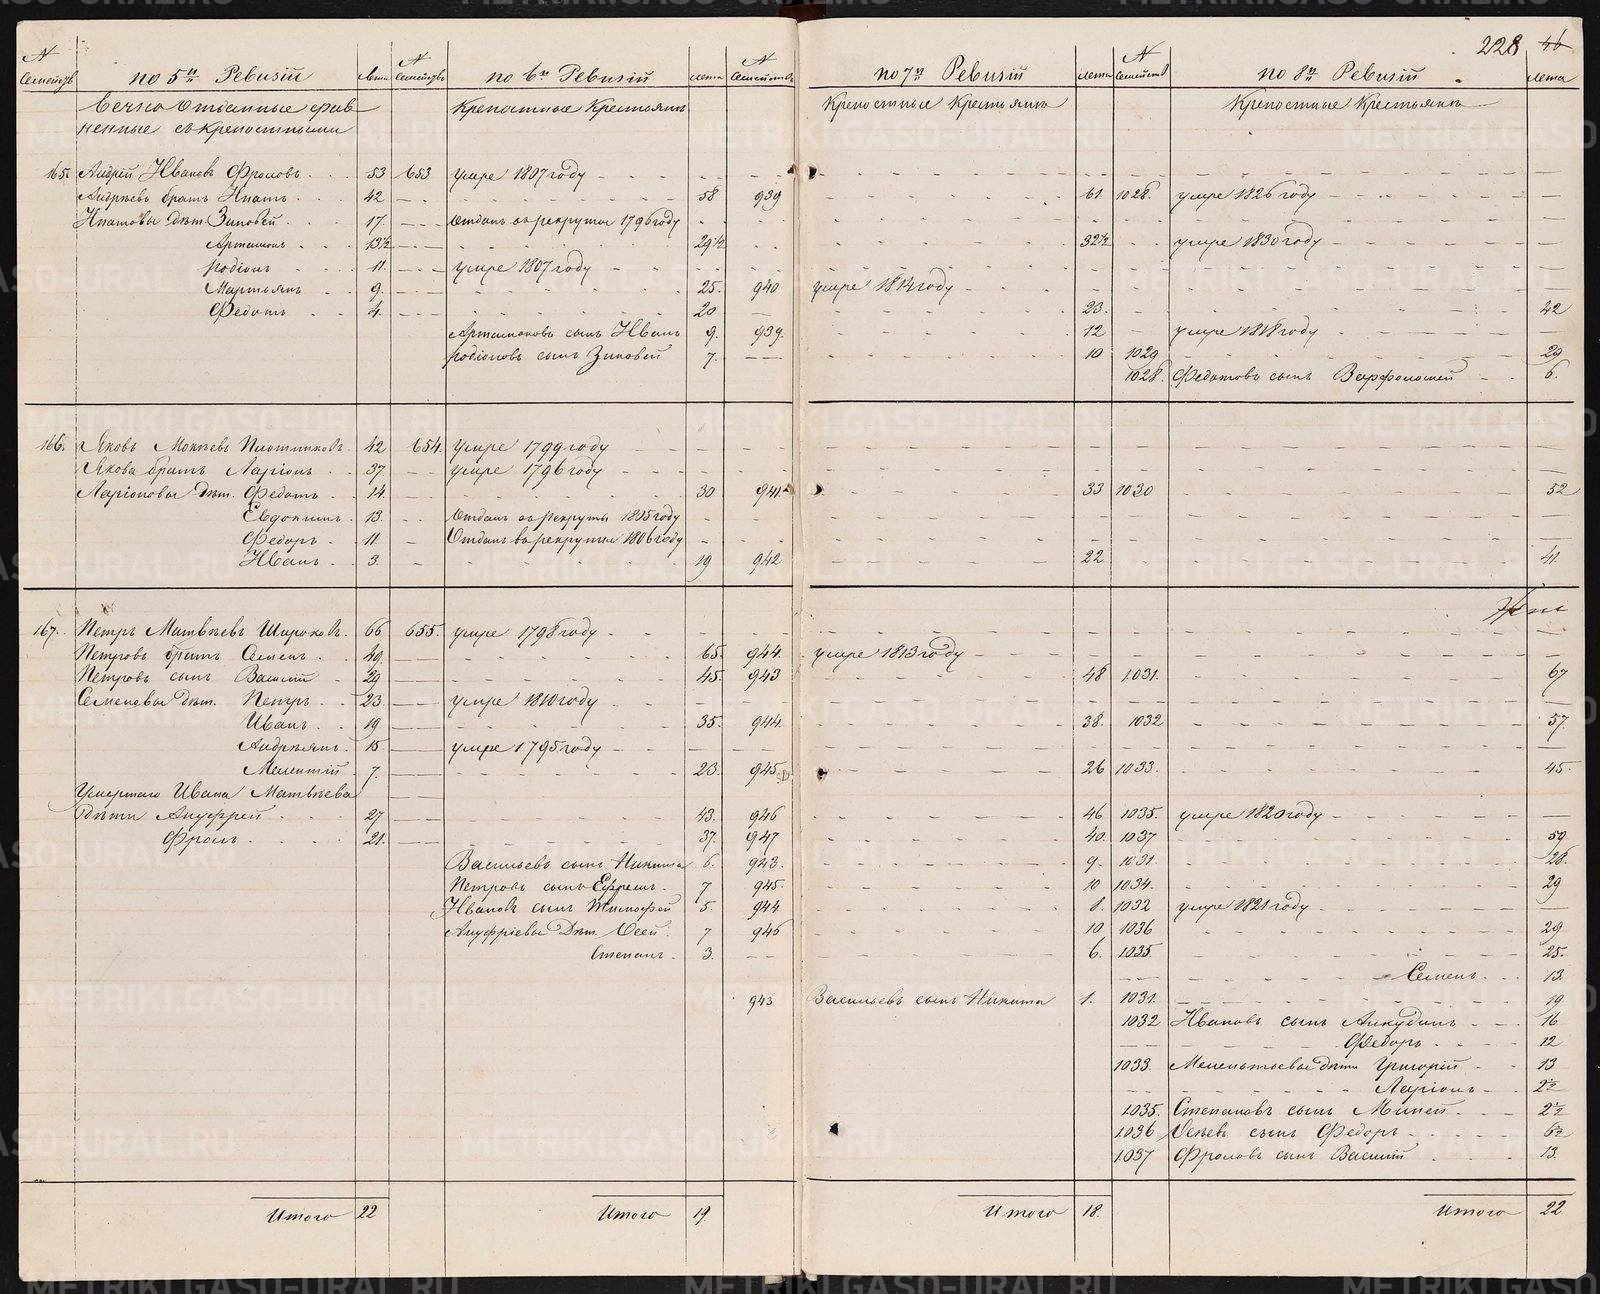 228 46
№ Семейств по 5й Ревизіи лета № Семейство по 6й Ревизіи лета № Семейства по 7й Ревизіи лета № Семейств по 8й Ревизіи лета
Вечно Отданные срав Крепостные Крестьянъ Крепостные Крестьянъ Крепостные Крестьянъ
ненные съ крепостными
165. Андрей Ивановъ Фроловъ 53 653 умре 1807 году
Андреевъ братъ Ипатъ 42 58 939 61 1028. умре 1826 году
Ипатовы дѣт. Зиновей 17 Отданъ въ рекруты 1796 году
Артамонъ 13½ 29½ 32½ умре 1830 году
Родіонъ 11. умре 1807 году
Мартьянъ 9. 25. 940 умре 1814 году
Федотъ 4. 20 23. 42
Артамоновъ сынъ Иванъ 9. 939. 12 умре 1818 году
Родіоновъ сынъ Зиновей 7. 10 1029 29
1028. Федотовъ сынъ Варфоломей 6.
166. Яковъ Мокѣевъ Плотниковъ 42 654. умре 1799 году
Якова братъ Ларіонъ 37 умре 1796 году
Ларіоновы дѣт. Федотъ 14. 30 941. 33 1030 52
Евдокимъ 13. Отданъ въ рекруты 1805 году
Федоръ 11. Отданъ въ рекруты 1806 году
Иванъ 3. 19 942 22 41.
167. Петръ Матвѣевъ Широковъ 66 655. умре 1798 году
Петровъ братъ Семенъ 49. 65. 944. умре 1813 году
Петровъ сынъ Василій 29 45. 943 48 1031. 67
Семеновы дѣт. Петръ 23 умре 1810 году
Иванъ 19 35. 944. 38. 1032 57.
Андреянъ 15. умре 1795 году
Мелентій 7. 23. 945. 26 1033. 45.
Умершаго Ивана Матвѣева
дѣти Ануфрей 27 43. 946 46 1035. умре 1820 году
Фролъ 21. 37. 947 40. 1037 59
Васильевъ сынъ Никита 6. 943. 9. 1031 28.
Петровъ сынъ Ефремъ 7 945. 10 1034. 29
Ивановъ сынъ Тимофей 5. 944 8. 1032 умре 1821 году
Ануфріевы дѣт. Осей 7 946 10 1036 29
Степанъ 3. 6. 1035. 25.
Семенъ 13.
943 Васильевъ сынъ Никита 1. 1031. 19
1032 Ивановъ сынъ Анкудинъ 16
Федоръ 12
1033. Мелентьевы дѣти Григорій 13
Ларіонъ 2½
1035. Степановъ сынъ Миней 2½
1036 Осѣевъ сынъ Федоръ 6½
1037 Фроловъ сынъ Василій 13.
Итого 22 Итого 19 Итого 18. Итого 22
METRIKI.GASO-URAL.RU